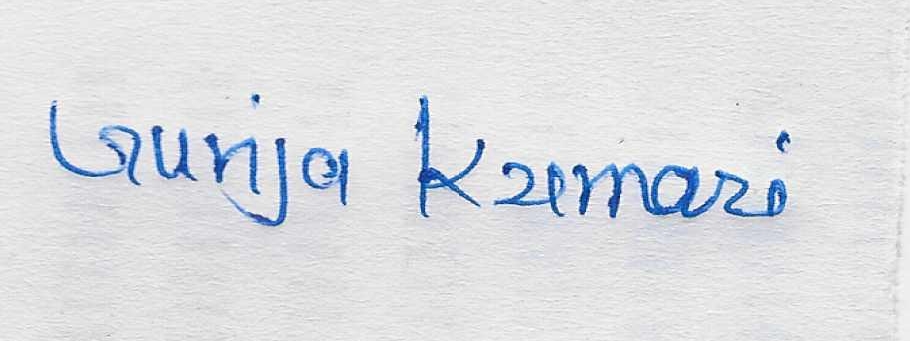 Gunja Kumari